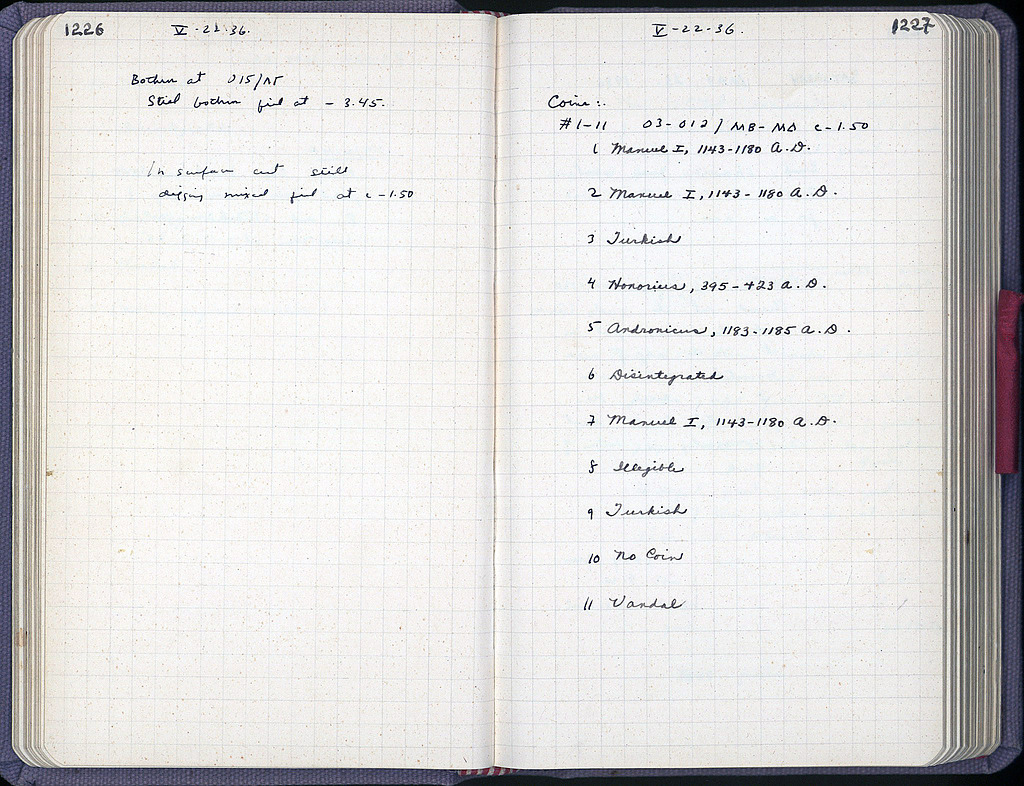 1226
V-22-36.
Bothm at 015/NT
Still bothm fill at - 3.45.
In surface cut still
digging mixed fill at c -1.50
V-22-36.
1227
Coins:.
#1-11 03-012/MB-MD c-1.50
1 Manuel I, 1143-1180 A.D.
2 Manuel I, 1143-1180 A.D.
3 Turkish
4 Honorius, 395-423 A.D.
5 Andronicus, 1183-1185 A.D.
6 Disintegrated
7 Manuel I, 1143-1180 A.D.
8 Illegible
9 Turkish
10 No Coin
11 Vandal